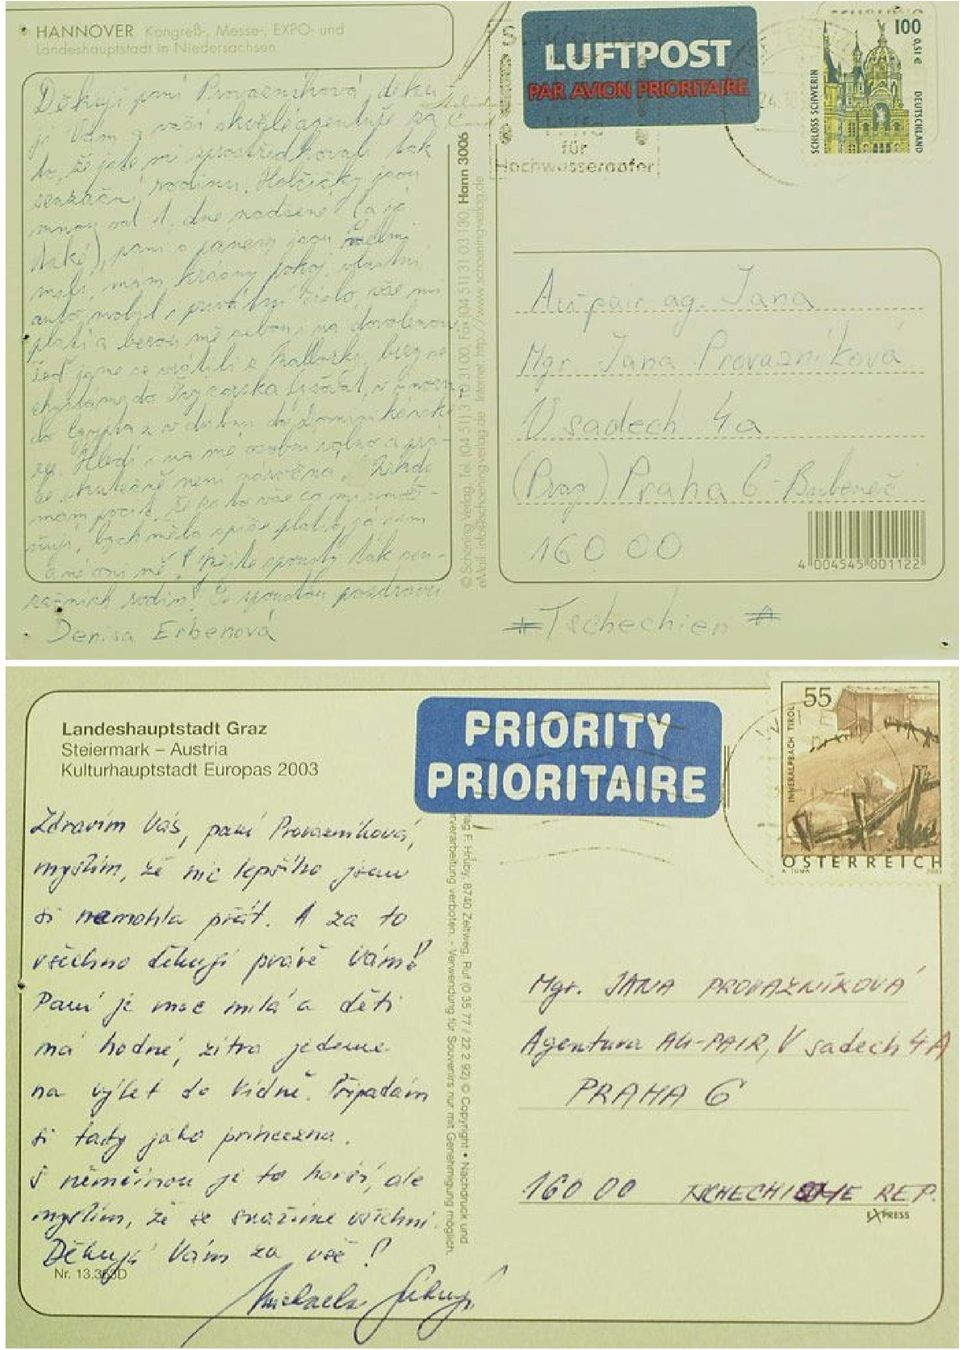 HANNOVER Kongreß-, Messe-, EXPO- und
Landeshauptstadt in Niedersachsen
LUFTPOST
PAR AVION PRIORITAIRE
für
Hochwasseropfer
100
0,51 €
SCHLOSS SCHWERIN
DEUTSCHLAND
Děkuji paní Provazníková, děku
ji Vám a vaší skvělé agentuře za
to, že jste mi zprostředkovali tak
senzační rodinu. Holčičky jsou
mnou od 1. dne nadšené (a já
také), paní a pánem jsou velmi
milí, mám krásný pokoj, vlastní
auto, mobil i privátní číslo, vše mi
platí a berou mě sebou i na dovolenou
teď jsme se vrátili z Mallorky, brzy se
chystáme do Švýcarska lyžovat, v únoru
do Egypta a v dubnu do Dominikánské
rep. Hledí i na mé osobní volno a prá-
ce skutečně není náročná. Někdy
mám pocit, že za to vše co mi umož-
ňují, bych měla spíše platit já jim
a ne oni mě! Přejte spousty tak sen-
začních rodin! Se spoustou pozdravů
Denisa Erbenová
© Schöning Verlag, Tel. (04 51) 3 10 31 00, Fax (04 51) 31 03 130, Hann 3006
eMail: info@schoeningverlag.de Internet: http://www.schoeningverlag.de
Au-pair ag. Jana
Mgr. Jana Provazníková
V sadech 4a
(Prag) Praha 6 - Bubeneč
160 00
Tschechien
4 004545 001122
Landeshauptstadt Graz
Steiermark – Austria
Kulturhauptstadt Europas 2003
PRIORITY
PRIORITAIRE
55
INNERALPBACH TIROL
ÖSTERREICH
Zdravím Vás, paní Provazníková,
myslím, že nic lepšího jsem
si nemohla přát. A za to
všechno děkuji právě Vám!
Paní je moc milá a děti
má hodné, zítra jedeme
na výlet do Vídně. Připadám
si tady jako princezna.
S němčinou je to horší, ale
myslím, že se snažíme všichni.
Děkuji Vám za vše!
Nr. 13.363D
Michaela
F. Hruby, 8740 Zeltweg, Ruf (0 35 77 / 22 2 92) © Copyright • Nachdruck und
verarbeitung verboten. - Verwendung für Souvenirs nur mit Genehmigung möglich.
Mgr. JANA PROVAZNÍKOVÁ
Agentura AU-PAIR, V sadech 4A
PRAHA 6
160 00 TSCHECHISCHE REP.
EXPRESS